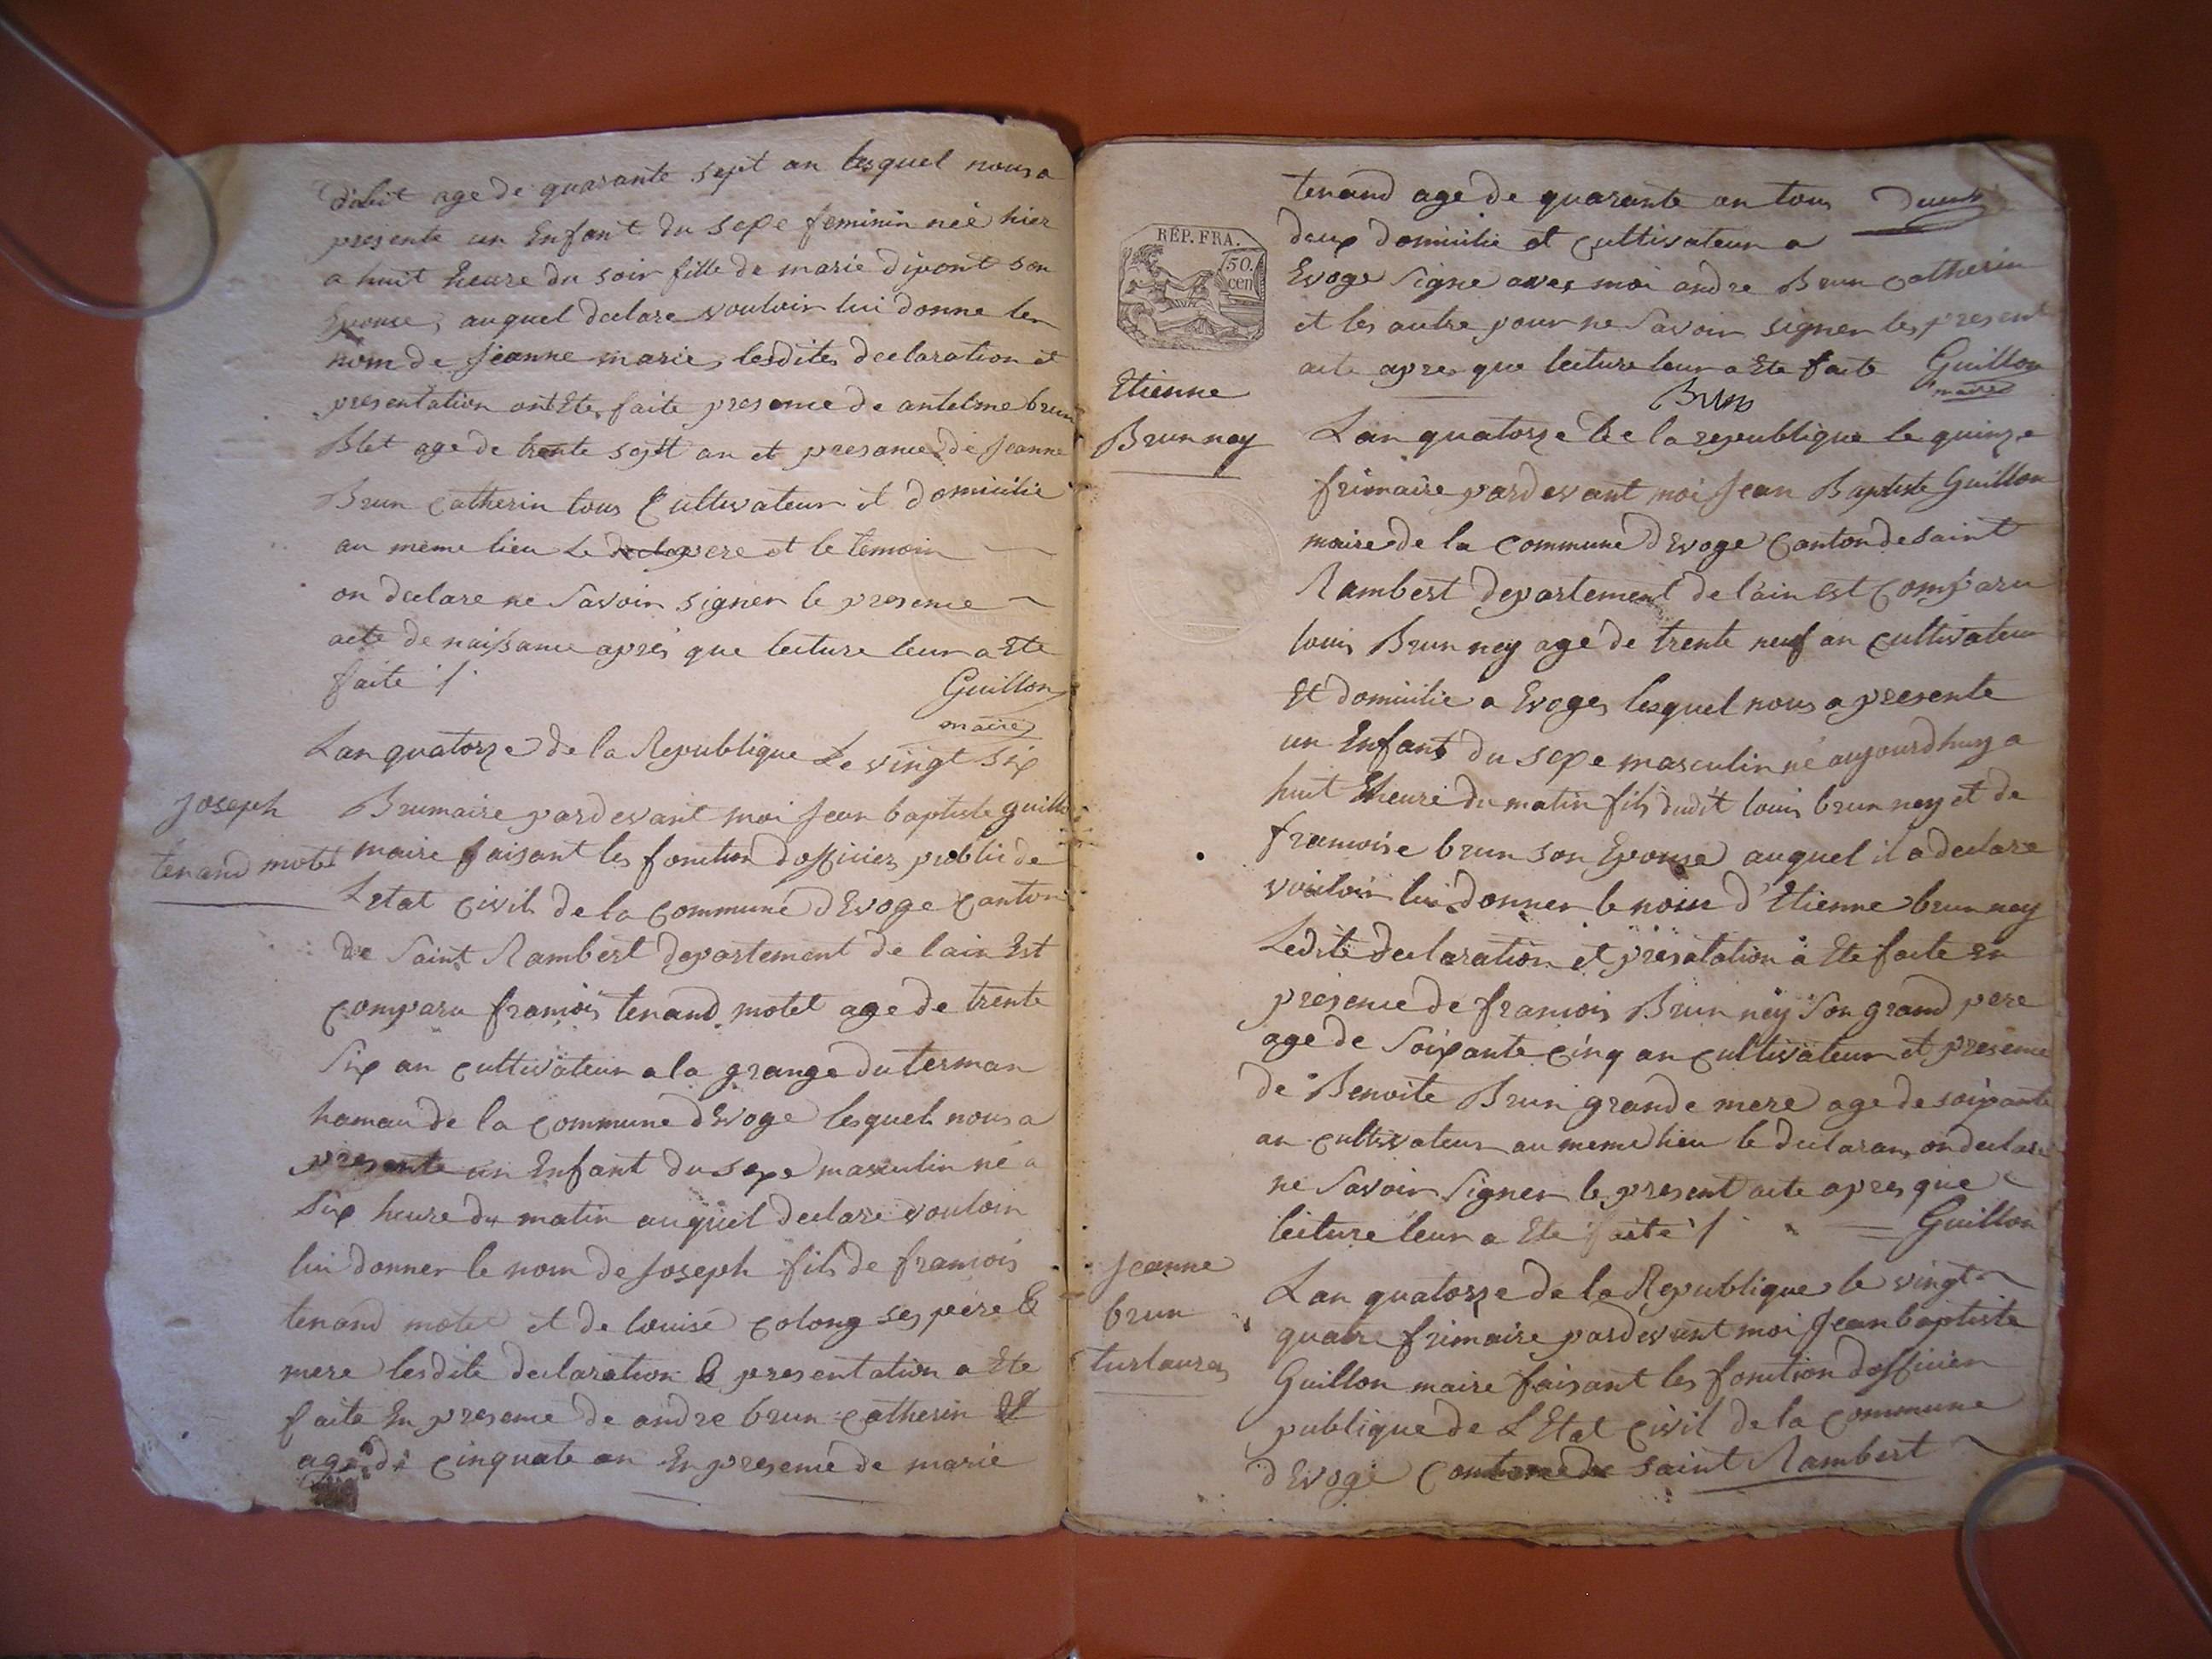 dalit age de quarante sept an lesquel nous a
presente un Enfant du sexe feminin neè hier
a huit heure du soir fille de marie dipont son
Epouse, auquel declare vouloir lui donne le
nom de jeanne marie, lesdites declaration et
presentation ont Ete, faite presence de antelme brun
Blet age de trente sept an et presance de jeanne
Brun catherin tous Cultivateur et domicilie
au meme lieu Le pere et le temoin
on declare ne Savoir signer le presence
acte de naissance aprés que lecture leur a Ete
faite /.
Guillon
maire
Lan quatorze de la Republique Le vingt six
Joseph
tenand motet
Brumaire pardevant moi jean baptiste guillon
maire faisant les fonction dofficier public de
Letat civil de la commune d'Evoge Canton
de Saint Rambert departement de lain Est
comparu francois tenand motet age de trente
Six an cultivateur a la grange du terman
hamau de la commune d'Evoge lesquel nous a
presente un Enfant du sexe masculin né a
Six heure du matin auquel declare vouloir
lui donner le nom de joseph fils de francois
tenand motet et de louise colong ses pere &
mere lesdite declaration & presentation a Ete
faite En presence de andre brun catherin
age de cinquate an En presence de marie
tenand age de quarante an tous
deux domicilie et cultivateur a
Evoge signe avec moi andre Brun catherin
et les autre pour ne Savoir signer les present
acte apres que lecture leur a Ete faite Guillon
maire
Brun
RÉP. FRA.
50.
cen
Etienne
Brun ney
Lan quatorze de la republique le quinze
frimaire pardevant moi Jean Baptiste Guillon
maire de la Commune d'Evoge Canton de saint
Rambert departement de l'ain est Comparu
louis Brun ney age de trente neuf an cultivateur
Et domicilie a Evoges lesquel nous a presente
un Enfant du sexe masculin né aujourdhuy a
huit heure du matin fils dudit louis brun ney et de
francoise brun son Epouse auquel il a declare
vouloir lui donner le nom d'Etienne brun ney
Ledite declaration et presatation a Ete faite En
presence de francois Brun ney Son grand pere
age de Soixante cinq an cultivateur et presence
de Benoite Brun grande mere age de soixante
an cultivateur au meme lieu le declaran, on declare
ne Savoir Signer le present acte apres que
lecture leur a Ete faite / Guillon
Jeanne
brun
turlaures
Lan quatorze de la Republique le vingt
quatre frimaire pardevant moi Jean baptiste
Guillon maire faisant les fonction dofficier
publique de L'Etat civil de la commune
d'Evoge Canton de saint Rambert